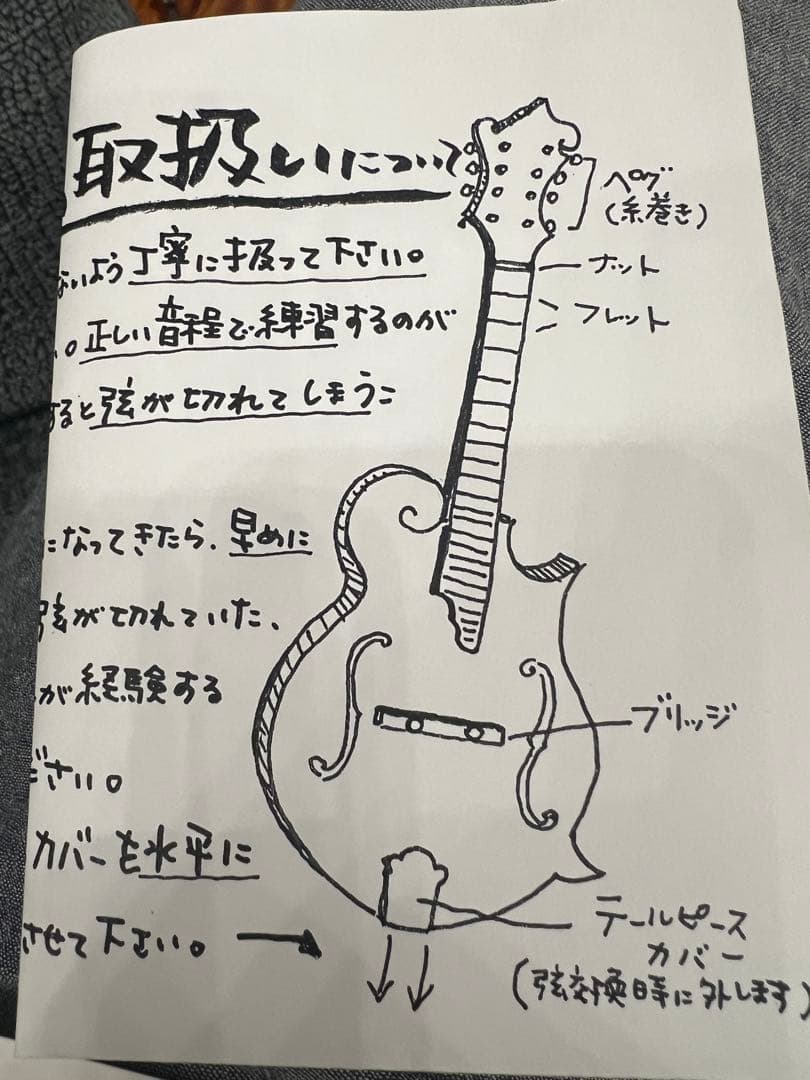 取扱いについて
ペグ
(糸巻き)
ナット
フレット
ないよう丁寧に扱って下さい。
い。正しい音程で練習するのが
すると弦が切れてしまうこ
になってきたら、早めに
弦が切れていた、
が経験する
ださい。
カバーを水平に
させて下さい。
ブリッジ
テールピース
カバー
(弦交換時に外します)